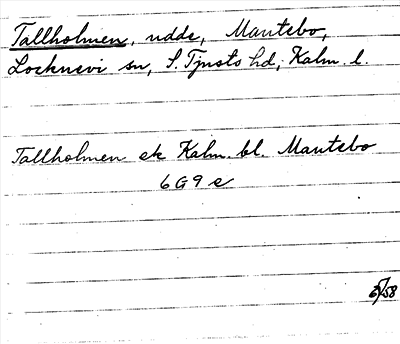 Tallholmen, udde, Mantebo,
Locknevi sn, S. Tjusts hd, Kalm. l.
Tallholmen ek Kalm. bl. Mantebo
6G9e
/58